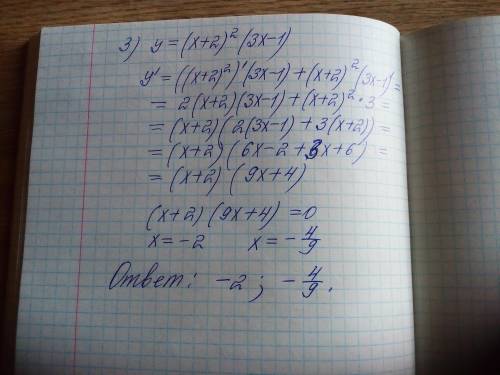 3) y = (x+2)² (3x-1)
y' = ((x+2)²)' (3x-1) + (x+2)² (3x-1)' =
= 2(x+2)(3x-1) + (x+2)² · 3 =
= (x+2) (2(3x-1) + 3(x+2)) =
= (x+2) (6x-2 + 3x+6) =
= (x+2) (9x+4)
(x+2) (9x+4) = 0
x = -2 x = - 4/9
Ответ: -2 ; - 4/9 .